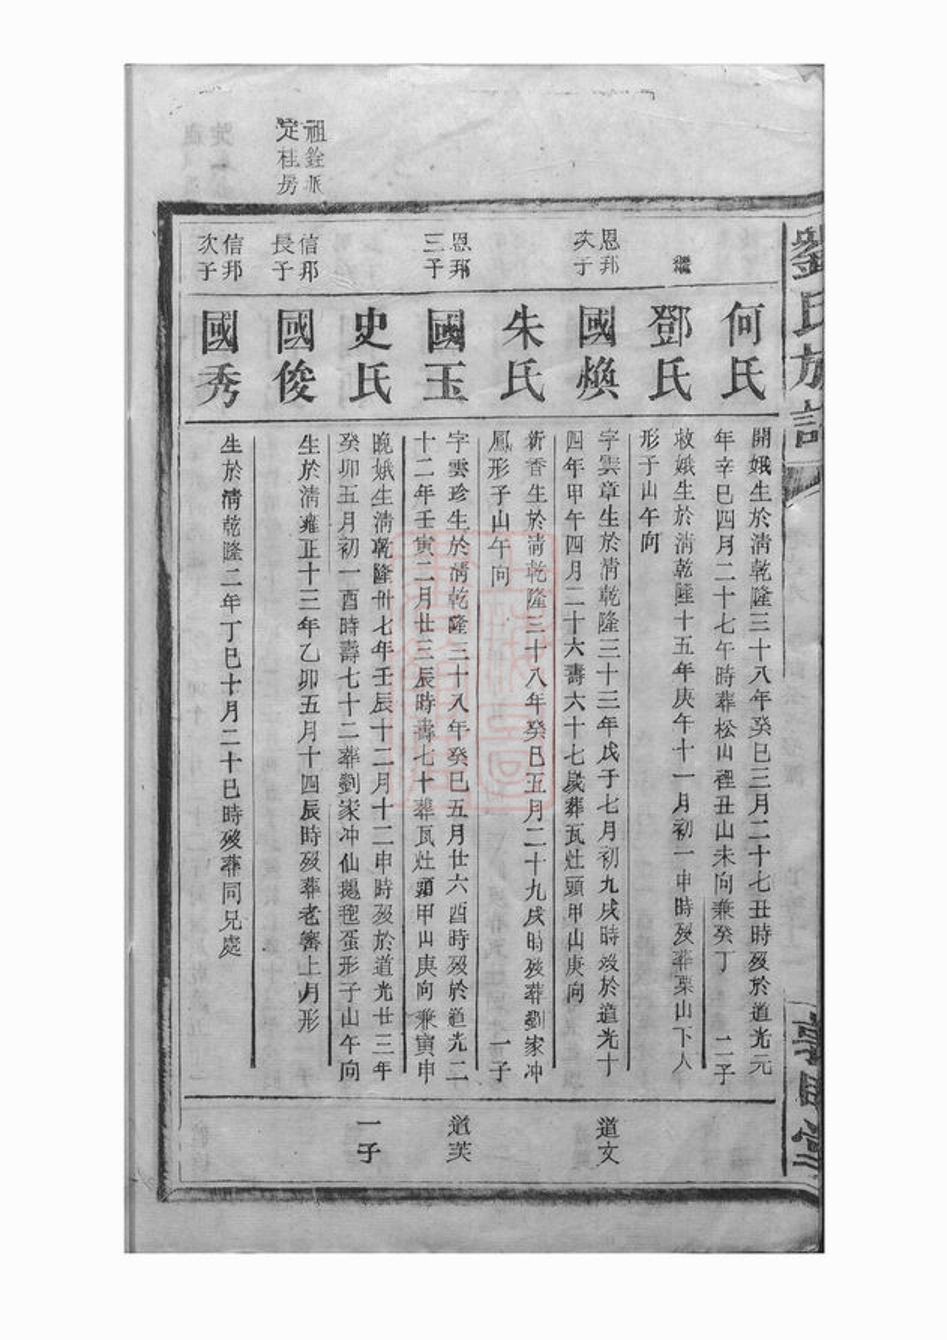 劉氏族譜
何氏
開娥生於清乾隆三十八年癸巳三月二十七丑時歿於道光元
年辛巳四月二十七午時葬松山裡丑山未向兼癸丁　二子
繼
鄧氏
敕娥生於清乾隆十五年庚午十一月初一申時歿葬栗山下人
形子山午向
恩邦
次子
國煥
字雲章生於清乾隆三十三年戊子七月初九戌時歿於道光十
四年甲午四月二十六壽六十七歲葬瓦灶頭甲山庚向
道文
朱氏
新香生於清乾隆三十八年癸巳五月二十九戌時歿葬劉家冲
鳳形子山午向　一子
恩邦
三子
國玉
字雲珍生於清乾隆三十八年癸巳五月廿六酉時歿於道光二
十二年壬寅二月廿三辰時壽七十葬瓦灶頭甲山庚向兼寅申
道芙
史氏
晚娥生清乾隆卅七年壬辰十二月十二申時歿於道光廿三年
癸卯五月初一酉時壽七十二葬劉家冲仙鵝抱蛋形子山午向
一子
祖銓派
定桂房
信邦
長子
國俊
生於清雍正十三年乙卯五月十四辰時歿葬老窖上月形
信邦
次子
國秀
生於清乾隆二年丁巳十月二十巳時歿葬同兄處